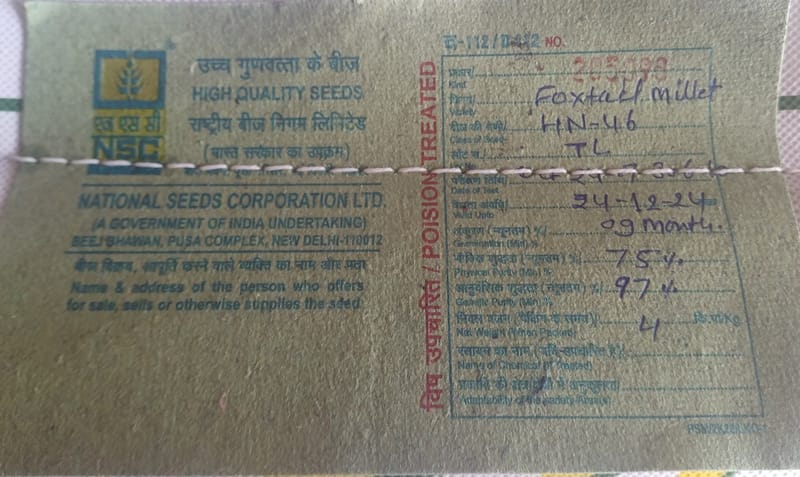 एन एस सी
NSC
उच्च गुणवत्ता के बीज
HIGH QUALITY SEEDS
राष्ट्रीय बीज निगम लिमिटेड
(भारत सरकार का उपक्रम)
NATIONAL SEEDS CORPORATION LTD.
(A GOVERNMENT OF INDIA UNDERTAKING)
BEEJ BHAWAN, PUSA COMPLEX, NEW DELHI-110012
बीज विक्रय, आपूर्ति करने वाले व्यक्ति का नाम और पता
Name & address of the person who offers
for sale, sells or otherwise supplies the seed
विष उपचारित / POISION TREATED
NO.
प्रकार/
Kind Foxtail millet
किस्म/
Variety HN-46
बीज की श्रेणी/
Class of Seed TL
लॉट सं./
परीक्षण तिथि/
Date of Test 24-12-24
वैधता अवधि/
Valid Upto 09 month.
अंकुरण (न्यूनतम) %/
Germination (Min) % 75 %
भौतिक शुद्धता (न्यूनतम) %/
Physical Purity (Min) % 97 %
आनुवंशिक शुद्धता (न्यूनतम) %/
Genetic Purity (Min) %
Net Weight (When Packed) 4 कि.ग्रा/Kg.
रसायन का नाम (यदि उपचारित है)/
Name of Chemical (if Treated)
प्रजाति की क्षेत्रों में अनुकूलता/
Adaptability of the variety Area(s)